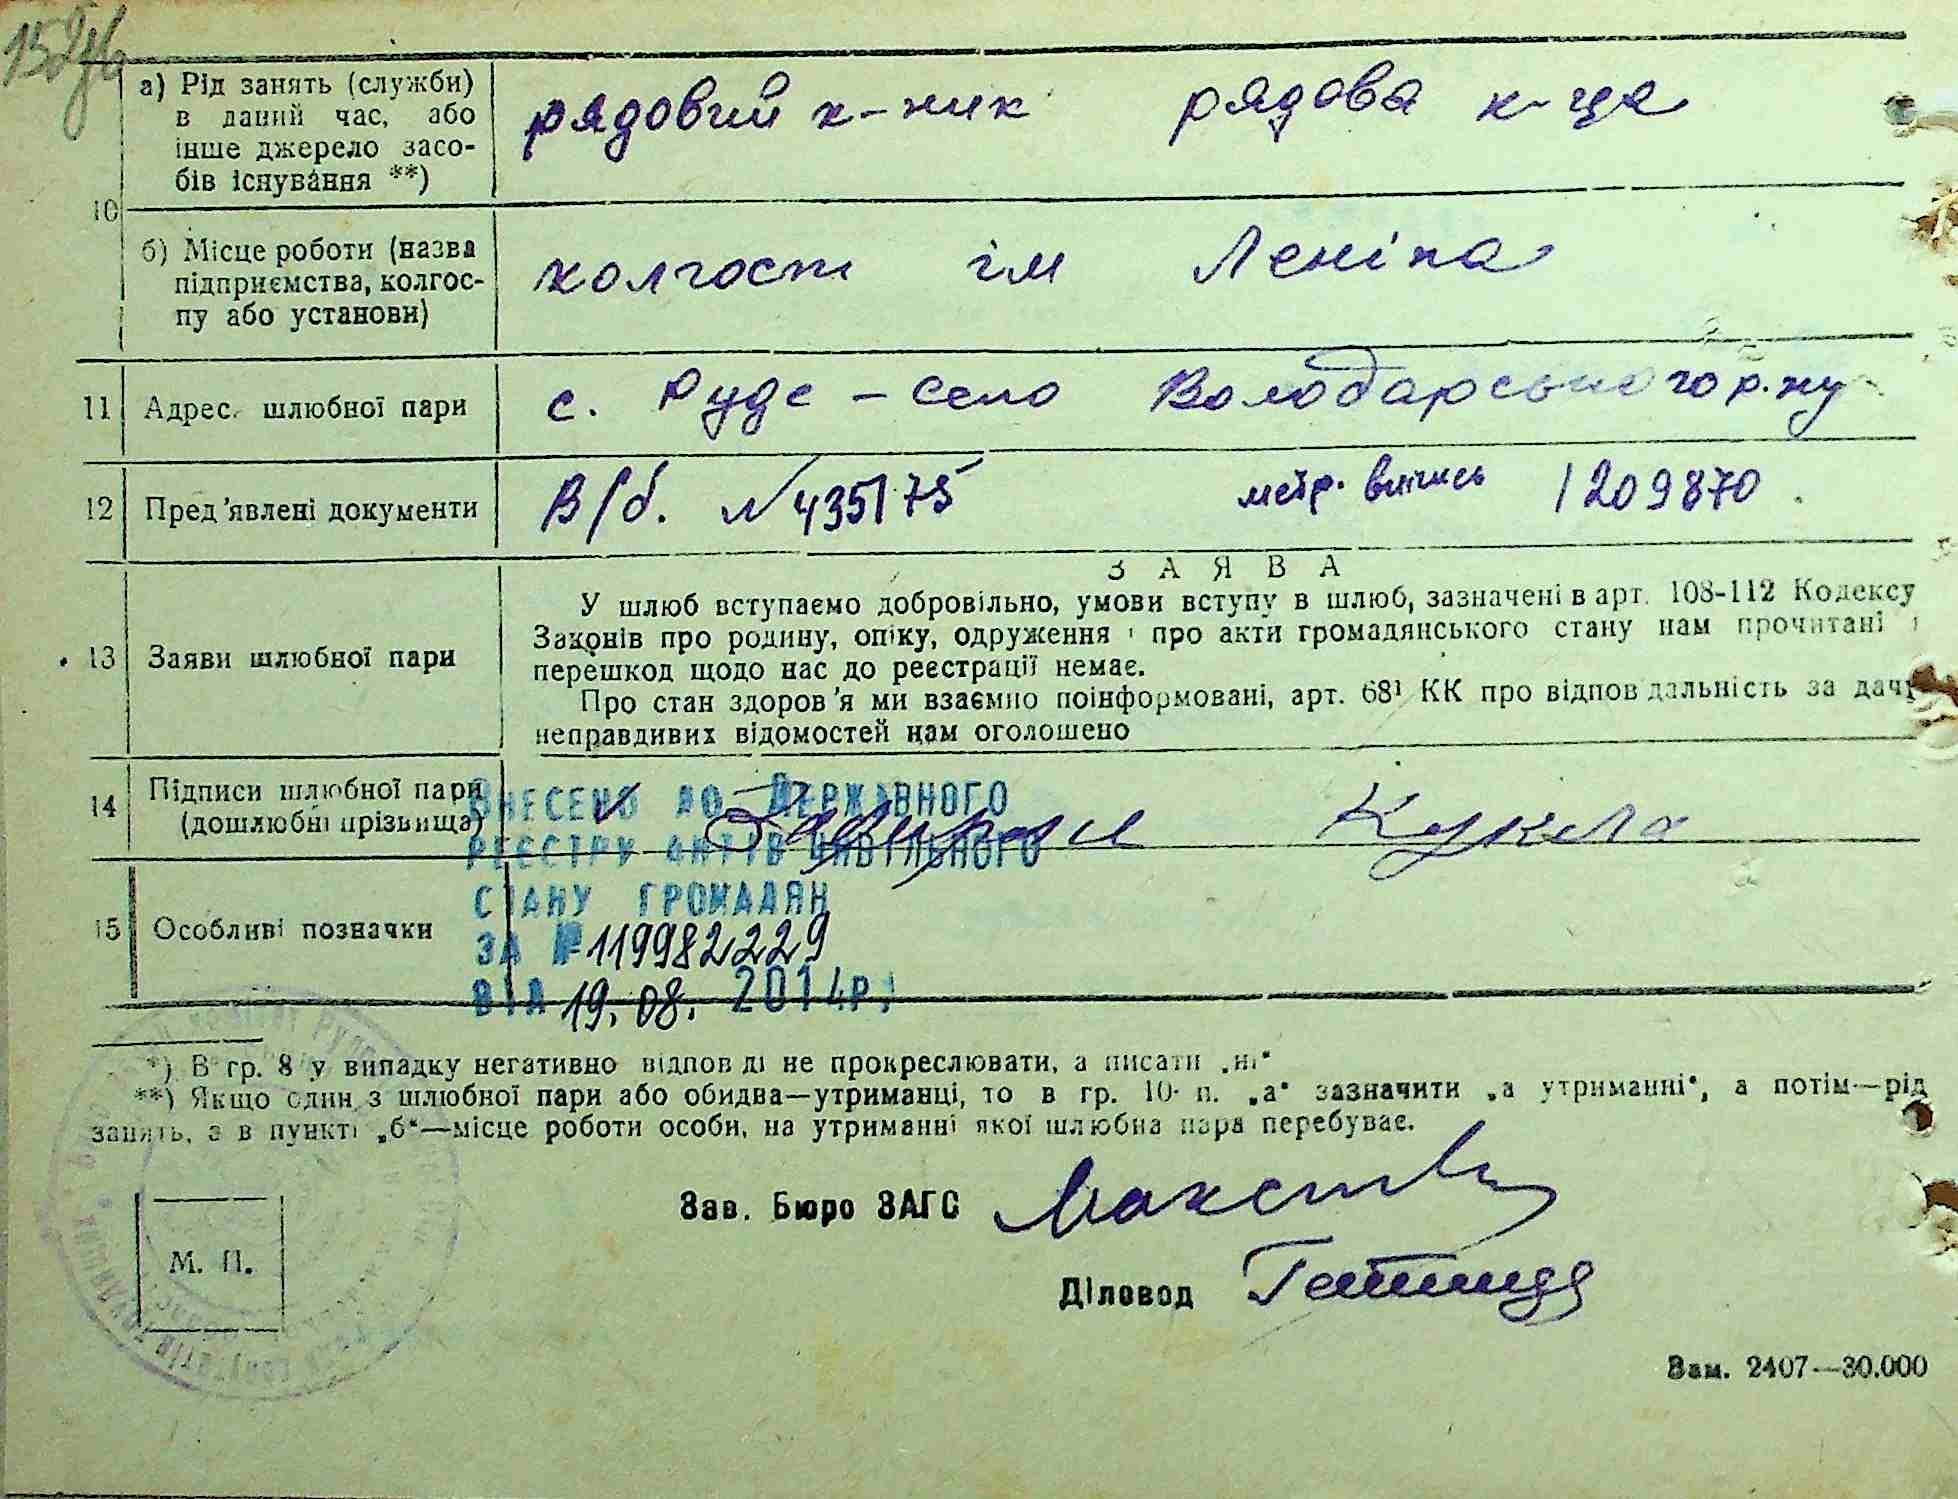 а) Рід занять (служби)
в даний час, або
інше джерело засо-
бів існування **)
рядовий к-ник рядова к-ця
10
б) Місце роботи (назва
підприємства, колгос-
пу або установи)
колгосп ім Леніна
11 Адрес шлюбної пари
с. Руде - село Володарського р.ну
12 Пред'явлені документи
В/б. № 435175 метр. випись 1209870
ЗАЯВА
13 Заяви шлюбної пари
У шлюб вступаємо добровільно, умови вступу в шлюб, зазначені в арт. 108-112 Кодексу
Законів про родину, опіку, одруження і про акти громадянського стану нам прочитані і
перешкод щодо нас до реєстрації немає.
Про стан здоров'я ми взаємно поінформовані, арт. 68¹ КК про відповідальність за дачу
неправдивих відомостей нам оголошено
14 Підписи шлюбної пари
(дошлюбні прізвища)
Кукла
ВНЕСЕНО ДО ДЕРЖАВНОГО
РЕЄСТРУ АКТІВ ЦИВІЛЬНОГО
СТАНУ ГРОМАДЯН
ЗА № 119982229
ВІД 19.08. 2014р.
15 Особливі позначки
*) В гр. 8 у випадку негативно відповіді не прокреслювати, а писати „ні“
**) Якщо один з шлюбної пари або обидва—утриманці, то в гр. 10 п. „а“ зазначити „а утриманні“, а потім—рід
занять, а в пункті „б“—місце роботи особи, на утриманні якої шлюбна пара перебуває.
Зав. Бюро ЗАГС
М. П.
Діловод
Зам. 2407—30.000